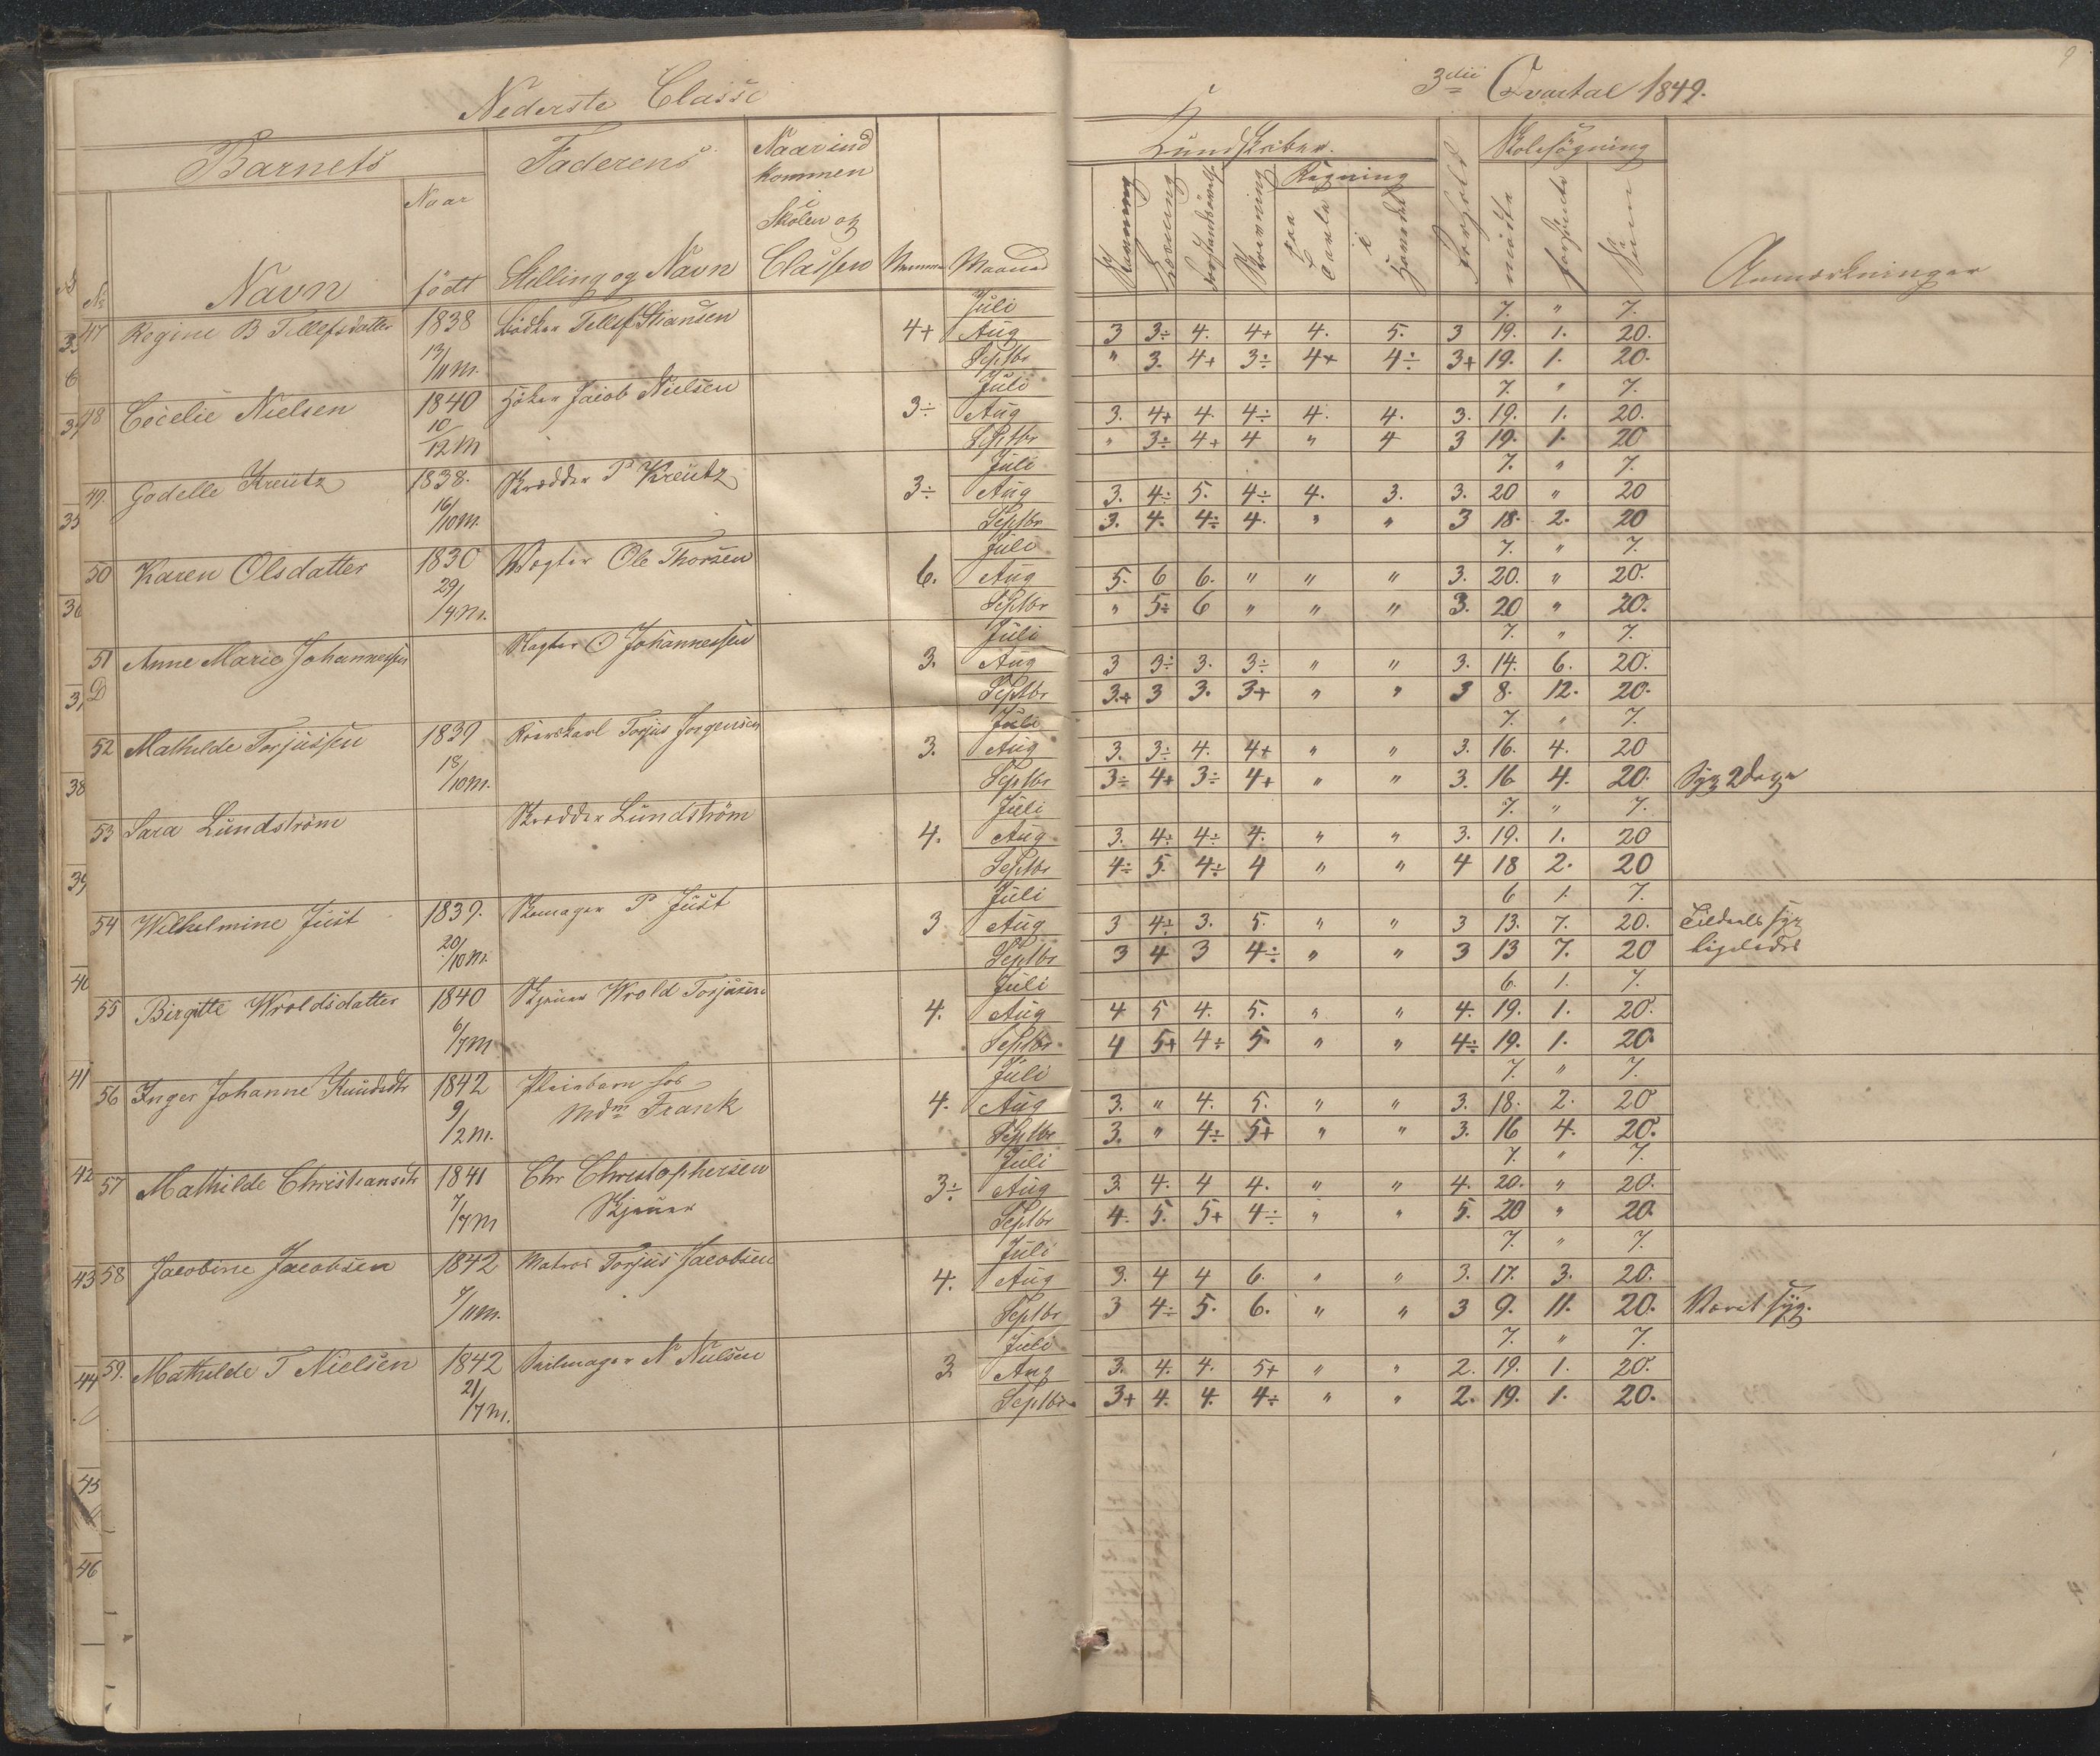 Nederste Classe
3die Qvartal 1849.
9
Barnets
Faderens
Naar ind
kommen
Skolen og
Classen
Kundskaber.
Skolesøgning
Regning
Naar
født
No
Navn
Stilling og Navn
Maaned
Læsning
Skrivning
paa
Tavle
i
Hovedet
Forhold
mødte
forsømte
Sum
Anmærkninger
47 Regine B Tellefsdatter 1838 Tellef Stiansen 4+ Juli 7. " 7.
Aug 3 3÷ 4. 4+ 4. 5. 3 19. 1. 20.
13/11 M. Septbr " 3. 4+ 3÷ 4+ 4÷ 3+ 19. 1. 20.
48 Cecelie Nielsen 1840 Høker Jacob Nielsen 3÷ Juli 7. " 7.
10 Aug 3. 4+ 4. 4÷ 4. 4. 3. 19. 1. 20.
12 M Septbr " 3÷ 4+ 4 " 4 3 19. 1. 20
49. Godelle Kreütz 1838. Skrædder P Kreütz 3÷ Juli 7. " 7.
Aug 3. 4÷ 5. 4÷ 4. 3. 3. 20 " 20
16/10 M. Septbr 3. 4. 4÷ 4. " " 3 18. 2. 20
50 Karen Olsdatter 1830 Vægter Ole Thorsen 6. Juli 7. " 7.
Aug 5. 6 6. " " " 3. 20. " 20.
29/4 M. Septbr " 5÷ 6 " " " 3. 20 " 20.
51 Anne Marie Johannessen O Johannessen 3. Juli 7. " 7.
D Aug 3 3÷ 3. 3÷ " " 3. 14. 6. 20.
Septbr 3+ 3 3. 3+ " " 3 8. 12. 20.
52 Mathilde Torjüssen 1839 Torjus Jorgensen 3. Juli 7. " 7.
Aug 3. 3÷ 4. 4+ " " 3. 16. 4. 20
18/10 M. Septbr 3÷ 4+ 3÷ 4+ " " 3. 16 4. 20. Syg 2 Dage
53 Sara Lündström Skrædder Lündström 4. Juli 7. " 7.
Aug 3. 4÷ 4÷ 4. " " 3. 19. 1. 20
Septbr 4÷ 5. 4÷ 4 " " 4 18 2. 20
54 Wilhelmine Jüst 1839. Skomager P. Jüst 3 Juli 6 1. 7.
Aug 3 4÷ 3. 5. " " 3 13. 7. 20. Tildeels syg
20/10 M. Septbr 3 4 3 4÷ " " 3 13 7. 20 ligeledes
55 Birgitte Wroldsdatter 1840 Wrold Torjüsen 4. Juli 6. 1. 7.
Aug 4 5 4. 5. " " 4. 19. 1. 20.
6/7 M Septbr 4 5+ 4÷ 5. " " 4÷ 19. 1. 20.
56 Inger Johanne Knüdsdtr 1842 Pleiebarn hos 4. Juli 7. " 7.
9/12 M. Mdm Frank Aug 3. " 4. 5. " " 3. 18. 2. 20
Septbr 3. " 4÷ 5+ " " 3. 16 4. 20.
57 Mathilde Christiansdtr 1841 Chr Christophersen 3÷ Juli 7. " 7.
7/7 M Aug 3. 4. 4 4. " " 4. 20. " 20.
Septbr 4. 5. 5+ 4÷ " " 5. 20 " 20.
58 Jacobine Jacobsen 1842 Matros Torjus Jacobsen 4. Juli 7. " 7.
Aug 3. 4 4 6. " " 3. 17. 3. 20.
7/11 M. Septbr 3 4÷ 5. 6. " " 3 9. 11. 20. Været syg.
59. Mathilde T Nielsen 1842 Seilmager N Nielsen 3. Juli 7. " 7.
Aug 3. 4. 4. 5+ " " 2. 19. 1. 20.
21/7 M. Septbr. 3+ 4. 4. 4÷ " " 2. 19. 1. 20.
35
36
38
39
40
41
42
43
44
45
46